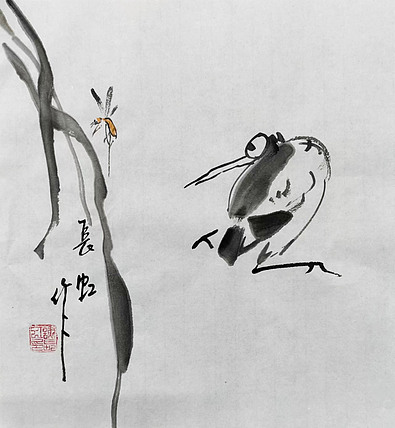 長虹
作